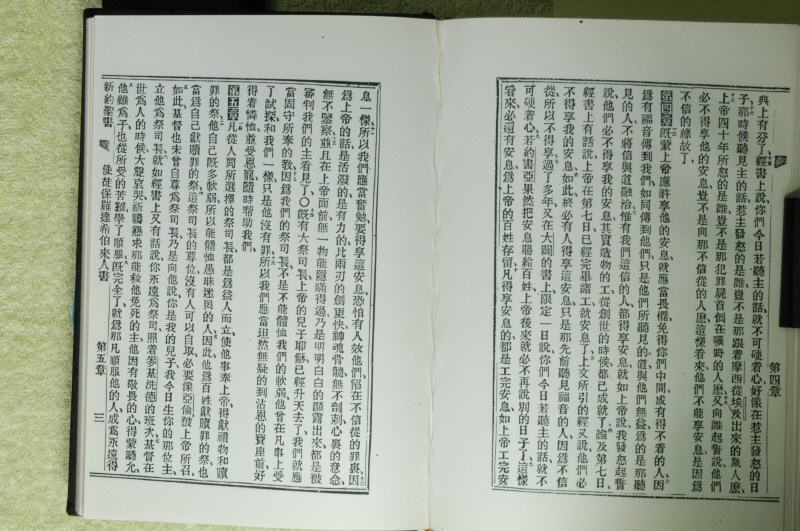 第四章
典上有分了、經書上說、你們今日若聽主的話、就不可硬着心、好像在惹主發怒的日
子、那時候聽見主的話、惹主發怒的是誰、豈不是那跟着摩西從埃及出來的衆人麽、
上帝四十年所怒的是誰、豈不是那犯罪屍首倒在曠野的人麽、又向誰起誓、說他們
必不得享他的安息、豈不是向那不信從的人麽、這樣看來、他們不能享安息、是因爲
不信的緣故了、
第四章既蒙上帝應許享他的安息、就應當畏懼、免得你們中間、或有得不着的人、因
爲有福音傳到我們、如同傳到他們、只是他們所聽見的道、與他們無益、爲的是那聽
見的人、不將信與道融洽、惟有我們這信的人、都得享安息、就如上帝說、我發怒起誓
說、他們必不得享我的安息、其實造物的工、從創世的時候都已成就了、論及第七日、
經書上有話說、上帝在第七日已經完畢諸工、就安息了、上文所引的經又說、他們必
不得享我的安息、如此終必有人得享這安息、只是那先前聽見福音的人、因爲不信
從、所以不得享、過了多年、又在大闢的書上、限定一日、說、你們今日若聽主的話、就不
可硬着心、若約書亞果然把安息賜給百姓、上帝後來就必不再說別的日子了、這樣
看來、必還有安息、爲上帝的百姓存留、凡得享安息的、都是工完安息、如上帝工完安
息一樣、所以我們應當奮勉、要得享這安息、恐怕有人效他們陷在不信從的罪裏、因
爲上帝的話是活潑的、是有力的、比兩刃的劍更快、神魂骨髓、無不剖刺、心裏的意念、
無不鑒察、並且在上帝面前、無一物能隱瞞得過、乃是明明白白的顯露出來、都是被
審判我們的主看見了、〇既有大祭司長、上帝的兒子耶穌、已經升天去了、我們就應
當固守所奉的教、因爲我們的祭司長、不是不能體恤我們的軟弱、他曾在凡事上受
了試探、和我們一樣、只是他沒有罪、所以我們應當坦然無疑的到沾恩的寶座前、好
得着憐恤、並受恩寵、隨時帮助我們、
第五章凡從人間所選擇的祭司長、都是爲益人而立、使他事奉上帝、得獻禮物和贖
罪的祭、他自己既多軟弱、所以能體恤愚昧迷罔的人、因此他爲百姓獻贖罪的祭、也
當爲自己獻贖罪的祭、這祭司長的尊位、沒有人可以自取、必要像亞倫被上帝所召、
如此基督也未曾自尊爲祭司長、乃是向他說、你是我的兒子、我今日生你的那位、主
立他爲祭司長、就如經書上又有話說、你永遠爲祭司、照着麥基洗德的班次、基督在
世爲人的時候、大聲哀哭、祈禱懇求那能救他免死的主、他因有敬畏的心、得蒙聽允、
他雖爲子、也從所受的苦難學了順服、既完全了、就爲那凡順服他的人、成爲永遠得
新約聖書 使徒保羅達希伯來人書 第五章 三